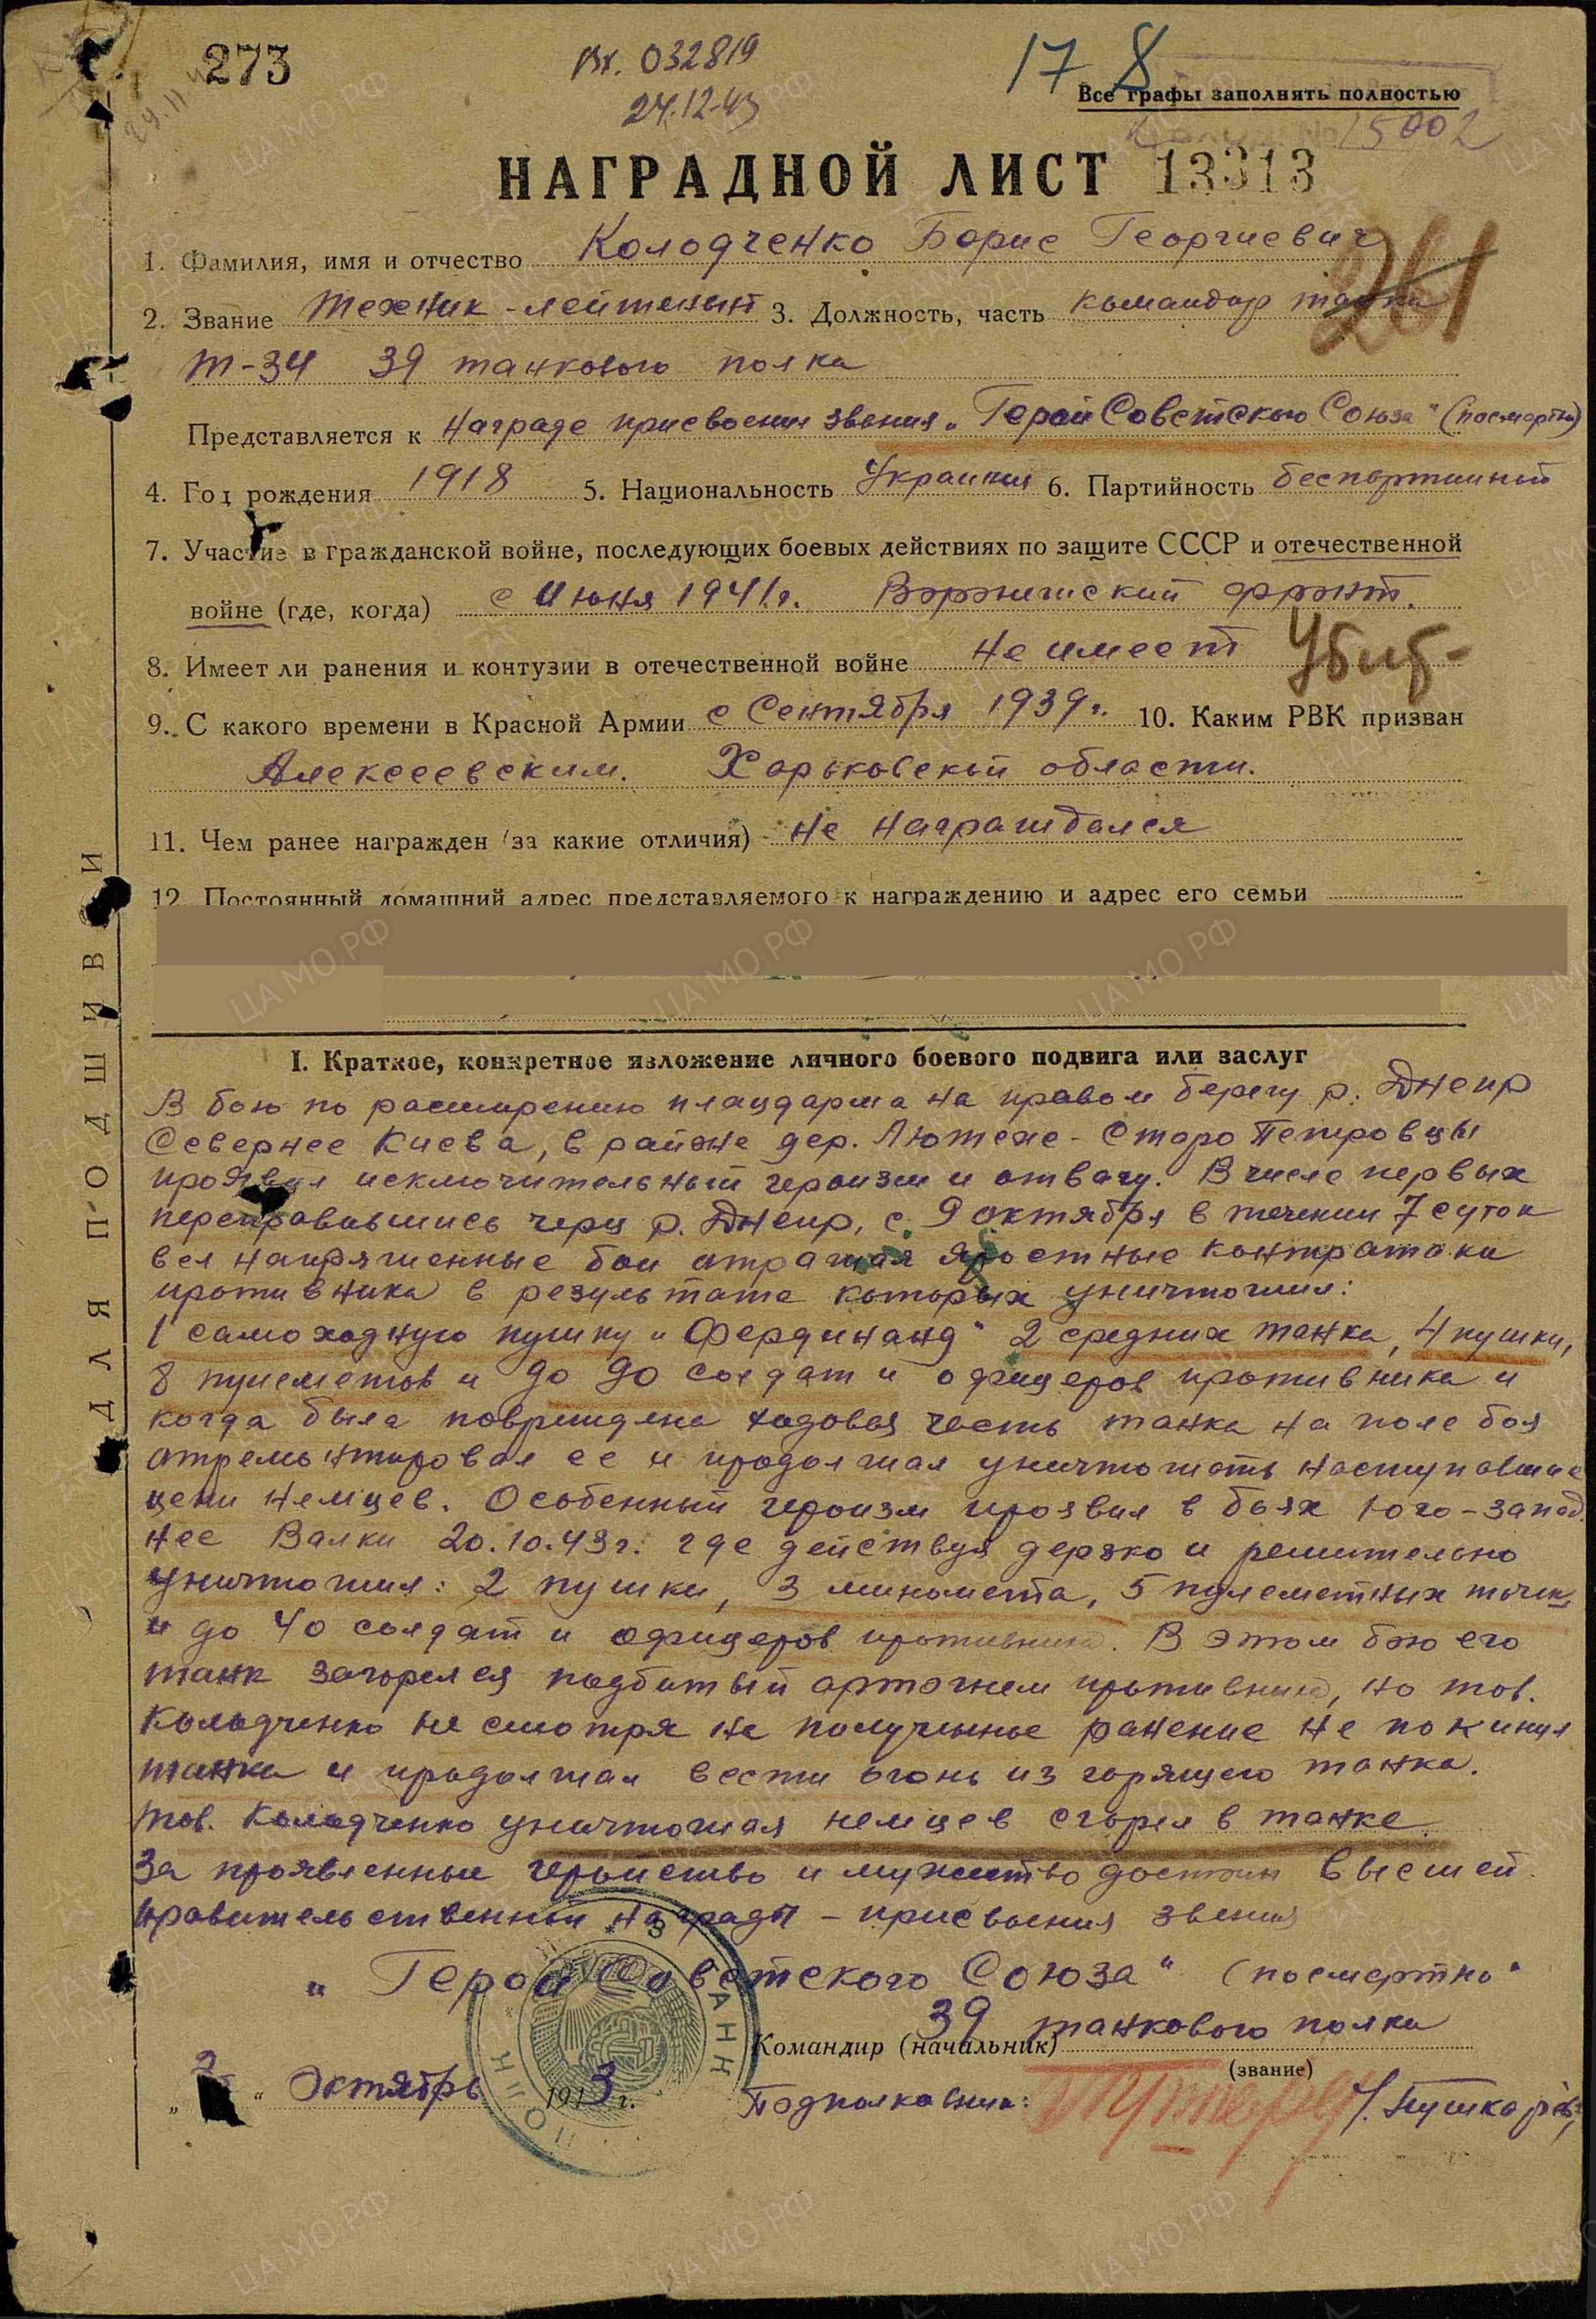 273
Вх. 032819
24.12.43
17 8
Все графы заполнять полностью
15002
НАГРАДНОЙ ЛИСТ 13313
1. Фамилия, имя и отчество Колодченко Борис Георгиевич
261
2. Звание техник-лейтенант 3. Должность, часть командир танка
Т-34 39 танкового полка
Представляется к награде присвоения звания „Герой Советского Союза" (посмертно)
4. Год рождения 1918 5. Национальность Украинец 6. Партийность беспартийный
7. Участие в гражданской войне, последующих боевых действиях по защите СССР и отечественной
войне (где, когда) с Июня 1941 г. Воронежский фронт.
8. Имеет ли ранения и контузии в отечественной войне Не имеет
Убит-
9. С какого времени в Красной Армии с Сентября 1939 г. 10. Каким РВК призван
Алексеевским. Харьковской области.
11. Чем ранее награжден (за какие отличия) Не награждался
12. Постоянный домашний адрес представляемого к награждению и адрес его семьи
ДЛЯ ПОДШИВКИ
I. Краткое, конкретное изложение личного боевого подвига или заслуг
В бою по расширению плацдарма на правом берегу р. Днепр
Севернее Киева, в районе дер. Лютеже - Старо Петровцы
проявил исключительный героизм и отвагу. В числе первых
переправившись через р. Днепр, с 9 октября в течении 7 суток
вел напряженные бои отражая яростные контратаки
противника в результате которых уничтожил:
1 самоходную пушку „Фердинанд" 2 средних танка, 4 пушки,
8 пулеметов и до 90 солдат и офицеров противника и
когда была повреждена ходовая часть танка на поле боя
отремонтировал ее и продолжал уничтожать наступавшие
цепи немцев. Особенный героизм проявил в боях юго-запад
нее Валки 20.10.43 г. где действуя дерзко и решительно
уничтожил: 2 пушки, 3 миномета, 5 пулеметных точек,
и до 40 солдат и офицеров противника. В этом бою его
танк загорелся подбитый артогнем противника, но тов.
Колодченко не смотря на полученное ранение не покинул
танка и продолжал вести огонь из горящего танка.
Тов. Колодченко уничтожая немцев сгорел в танке.
За проявленные геройство и мужество достоин высшей
правительственной награды - присвоения звания
„Герой Советского Союза" (посмертно"
39 танкового полка
Командир (начальник)
(звание)
„ " Октябрь 1943 г.
Подполковник: /. Пушкарев/